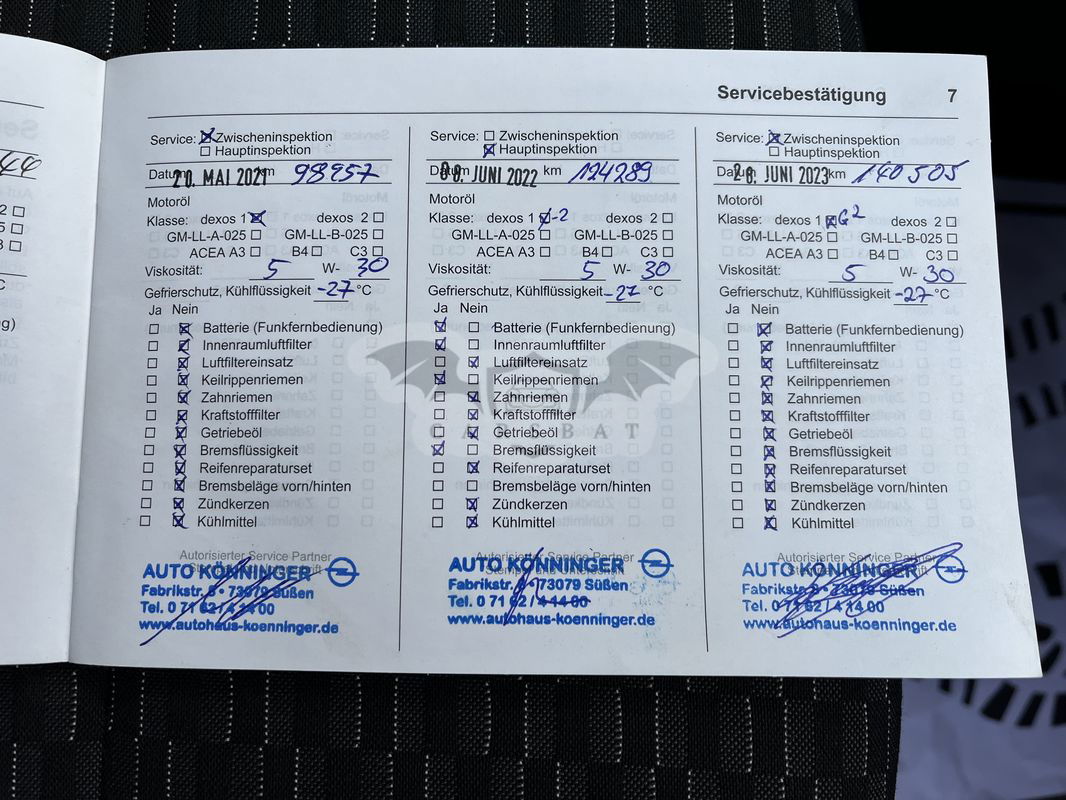 Servicebestätigung 7
Service: Zwischeninspektion
Hauptinspektion
Datum 20. MAI 2021 km 98957
Motoröl
Klasse: dexos 1 dexos 2
GM-LL-A-025 GM-LL-B-025
ACEA A3 B4 C3
Viskosität: 5 W- 30
Gefrierschutz, Kühlflüssigkeit -27 °C
Ja Nein
Batterie (Funkfernbedienung)
Innenraumluftfilter
Luftfiltereinsatz
Keilrippenriemen
Zahnriemen
Kraftstofffilter
Getriebeöl
Bremsflüssigkeit
Reifenreparaturset
Bremsbeläge vorn/hinten
Zündkerzen
Kühlmittel
Autorisierter Service Partner
AUTO KÖNNINGER
Fabrikstr. 8 • 73079 Süßen
Tel. 0 71 62 / 4 14 00
www.autohaus-koenninger.de
Service: Zwischeninspektion
Hauptinspektion
08. JUNI 2022 km 124289
Motoröl
Klasse: dexos 1 -2 dexos 2
GM-LL-A-025 GM-LL-B-025
ACEA A3 B4 C3
Viskosität: 5 W- 30
Gefrierschutz, Kühlflüssigkeit -27 °C
Ja Nein
Batterie (Funkfernbedienung)
Innenraumluftfilter
Luftfiltereinsatz
Keilrippenriemen
Zahnriemen
Kraftstofffilter
Getriebeöl
Bremsflüssigkeit
Reifenreparaturset
Bremsbeläge vorn/hinten
Zündkerzen
Kühlmittel
Autorisierter Service Partner
AUTO KÖNNINGER
Fabrikstr. 8 • 73079 Süßen
Tel. 0 71 62 / 4 14 00
www.autohaus-koenninger.de
Service: Zwischeninspektion
Hauptinspektion
28. JUNI 2023 km 140505
Motoröl
Klasse: dexos 1 G2 dexos 2
GM-LL-A-025 GM-LL-B-025
ACEA A3 B4 C3
Viskosität: 5 W- 30
Gefrierschutz, Kühlflüssigkeit -27 °C
Ja Nein
Batterie (Funkfernbedienung)
Innenraumluftfilter
Luftfiltereinsatz
Keilrippenriemen
Zahnriemen
Kraftstofffilter
Getriebeöl
Bremsflüssigkeit
Reifenreparaturset
Bremsbeläge vorn/hinten
Zündkerzen
Kühlmittel
Autorisierter Service Partner
AUTO KÖNNINGER
Fabrikstr. 8 • 73079 Süßen
Tel. 0 71 62 / 4 14 00
www.autohaus-koenninger.de
CARSBAT